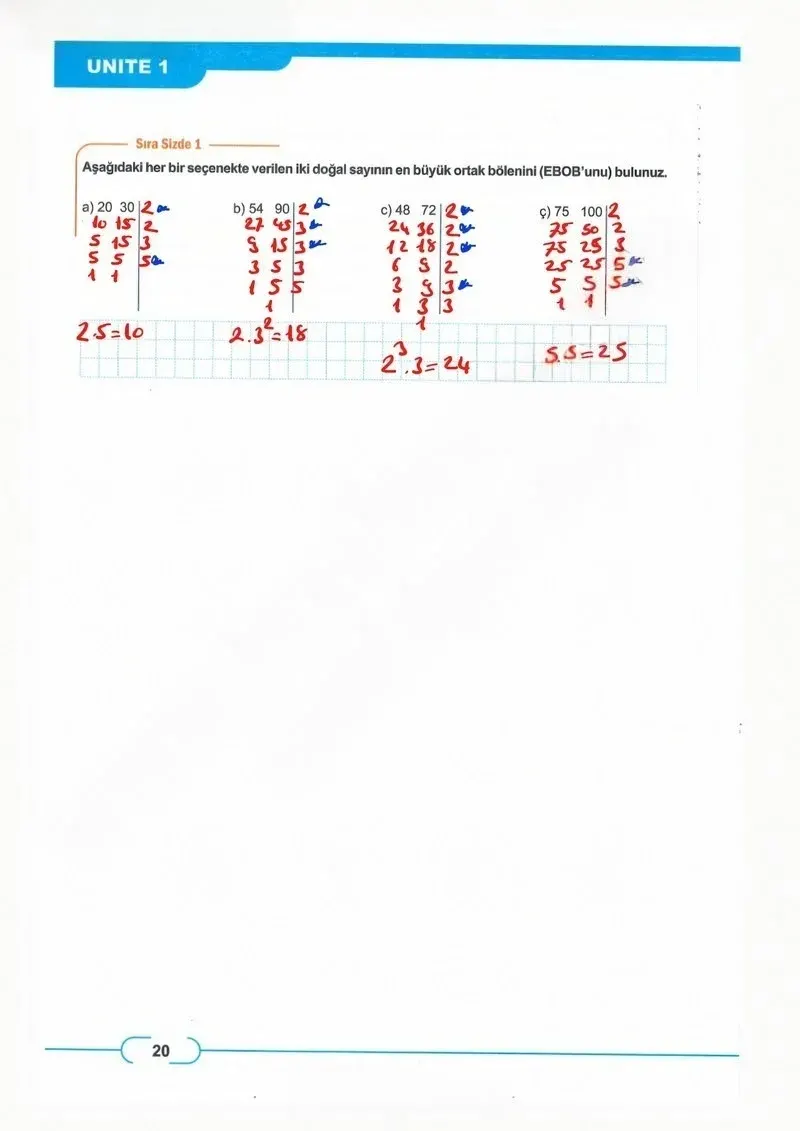 UNITE 1
Sıra Sizde 1
Aşağıdaki her bir seçenekte verilen iki doğal sayının en büyük ortak bölenini (EBOB'unu) bulunuz.
a) 20 30 2
10 15 2
5 15 3
5 5 5
1 1
2.5=10
b) 54 90 2
27 45 3
9 15 3
3 5 3
1 5 5
1
2.3²=18
c) 48 72 2
24 36 2
12 18 2
6 9 2
3 9 3
1 3 3
1
2³.3=24
ç) 75 100 2
75 50 2
75 25 3
25 25 5
5 5 5
1 1
5.5=25
20